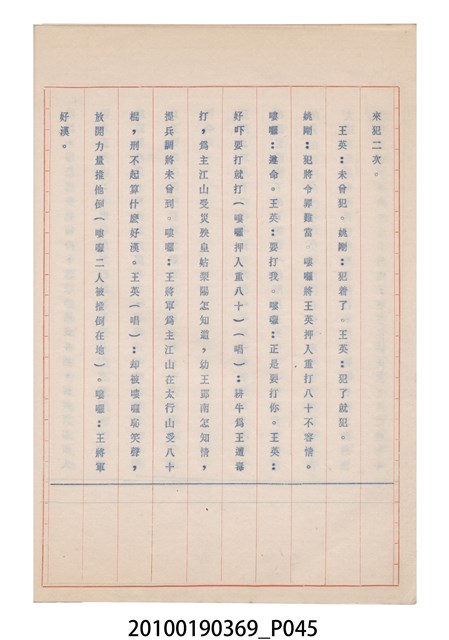 來犯二次。
王英：未曾犯。姚剛：犯着了。王英：犯了就犯。
姚剛：犯將令罪難當。嘍囉將王英押入重打八十不容情。
嘍囉：遵命。王英：要打我。嘍囉：正是要打你。王英：
好吓要打就打（嘍囉押入重八十）（唱）：耕牛為王遭毒
打，為主江山受災殃皇姑梨陽怎知道，幼王鄧南怎知情，
提兵調將未曾到。嘍囉：王將軍為主江山在太行山受八十
棍，刑不起算什麽好漢。王英（唱）：却被嘍囉恥笑聲，
放開力量推他倒（嘍囉二人被推倒在地）。嘍囉：王將軍
好漢。
20100190369_P045